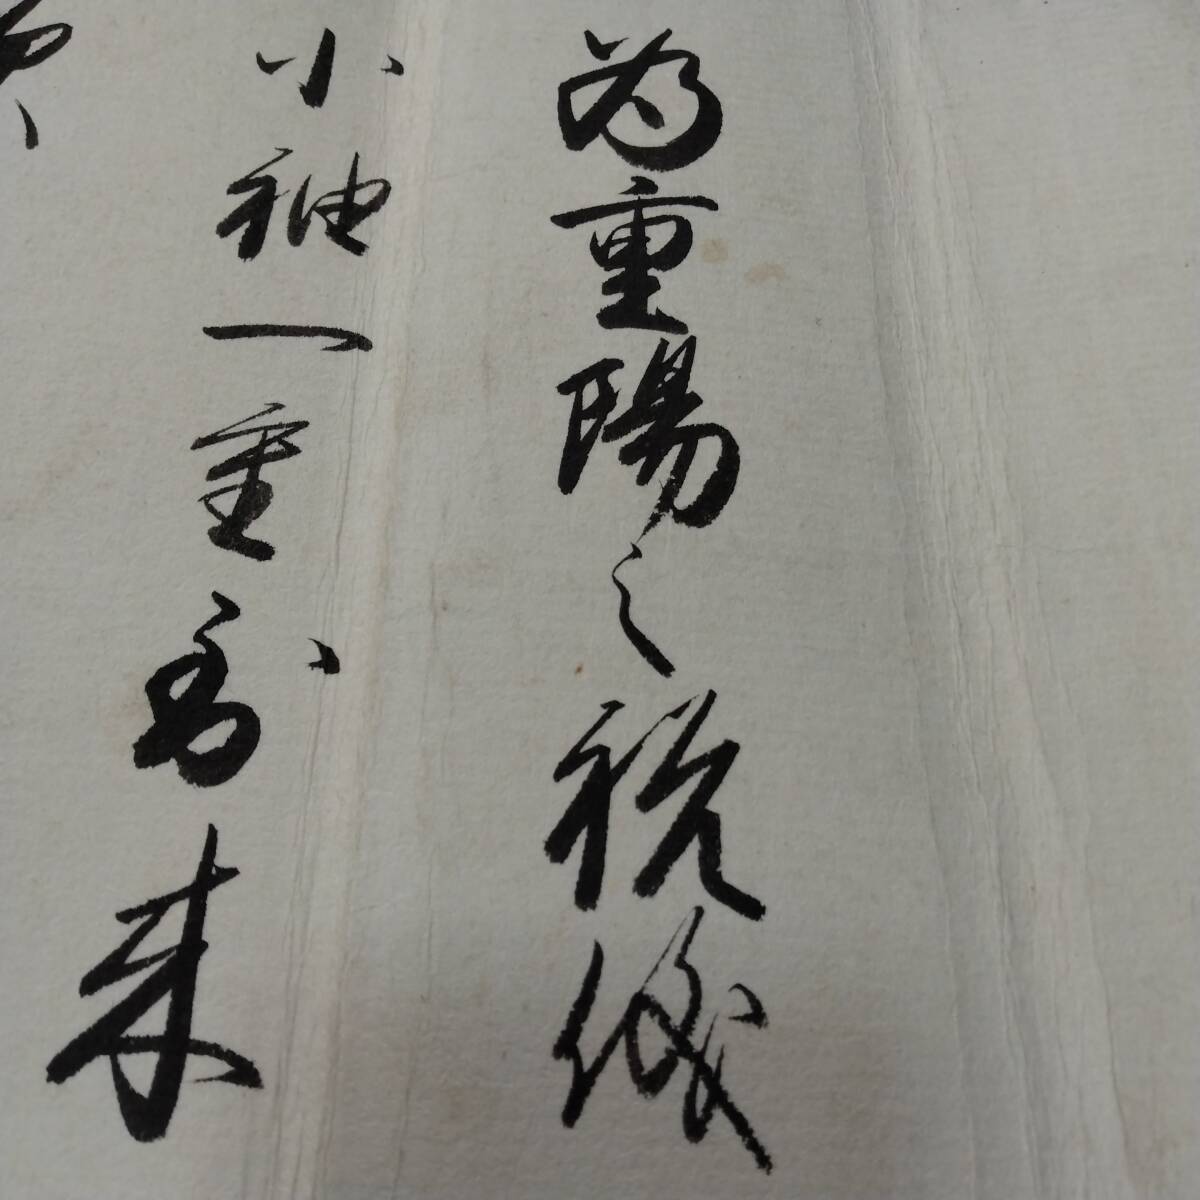 為重陽之祝儀
小袖一重到来